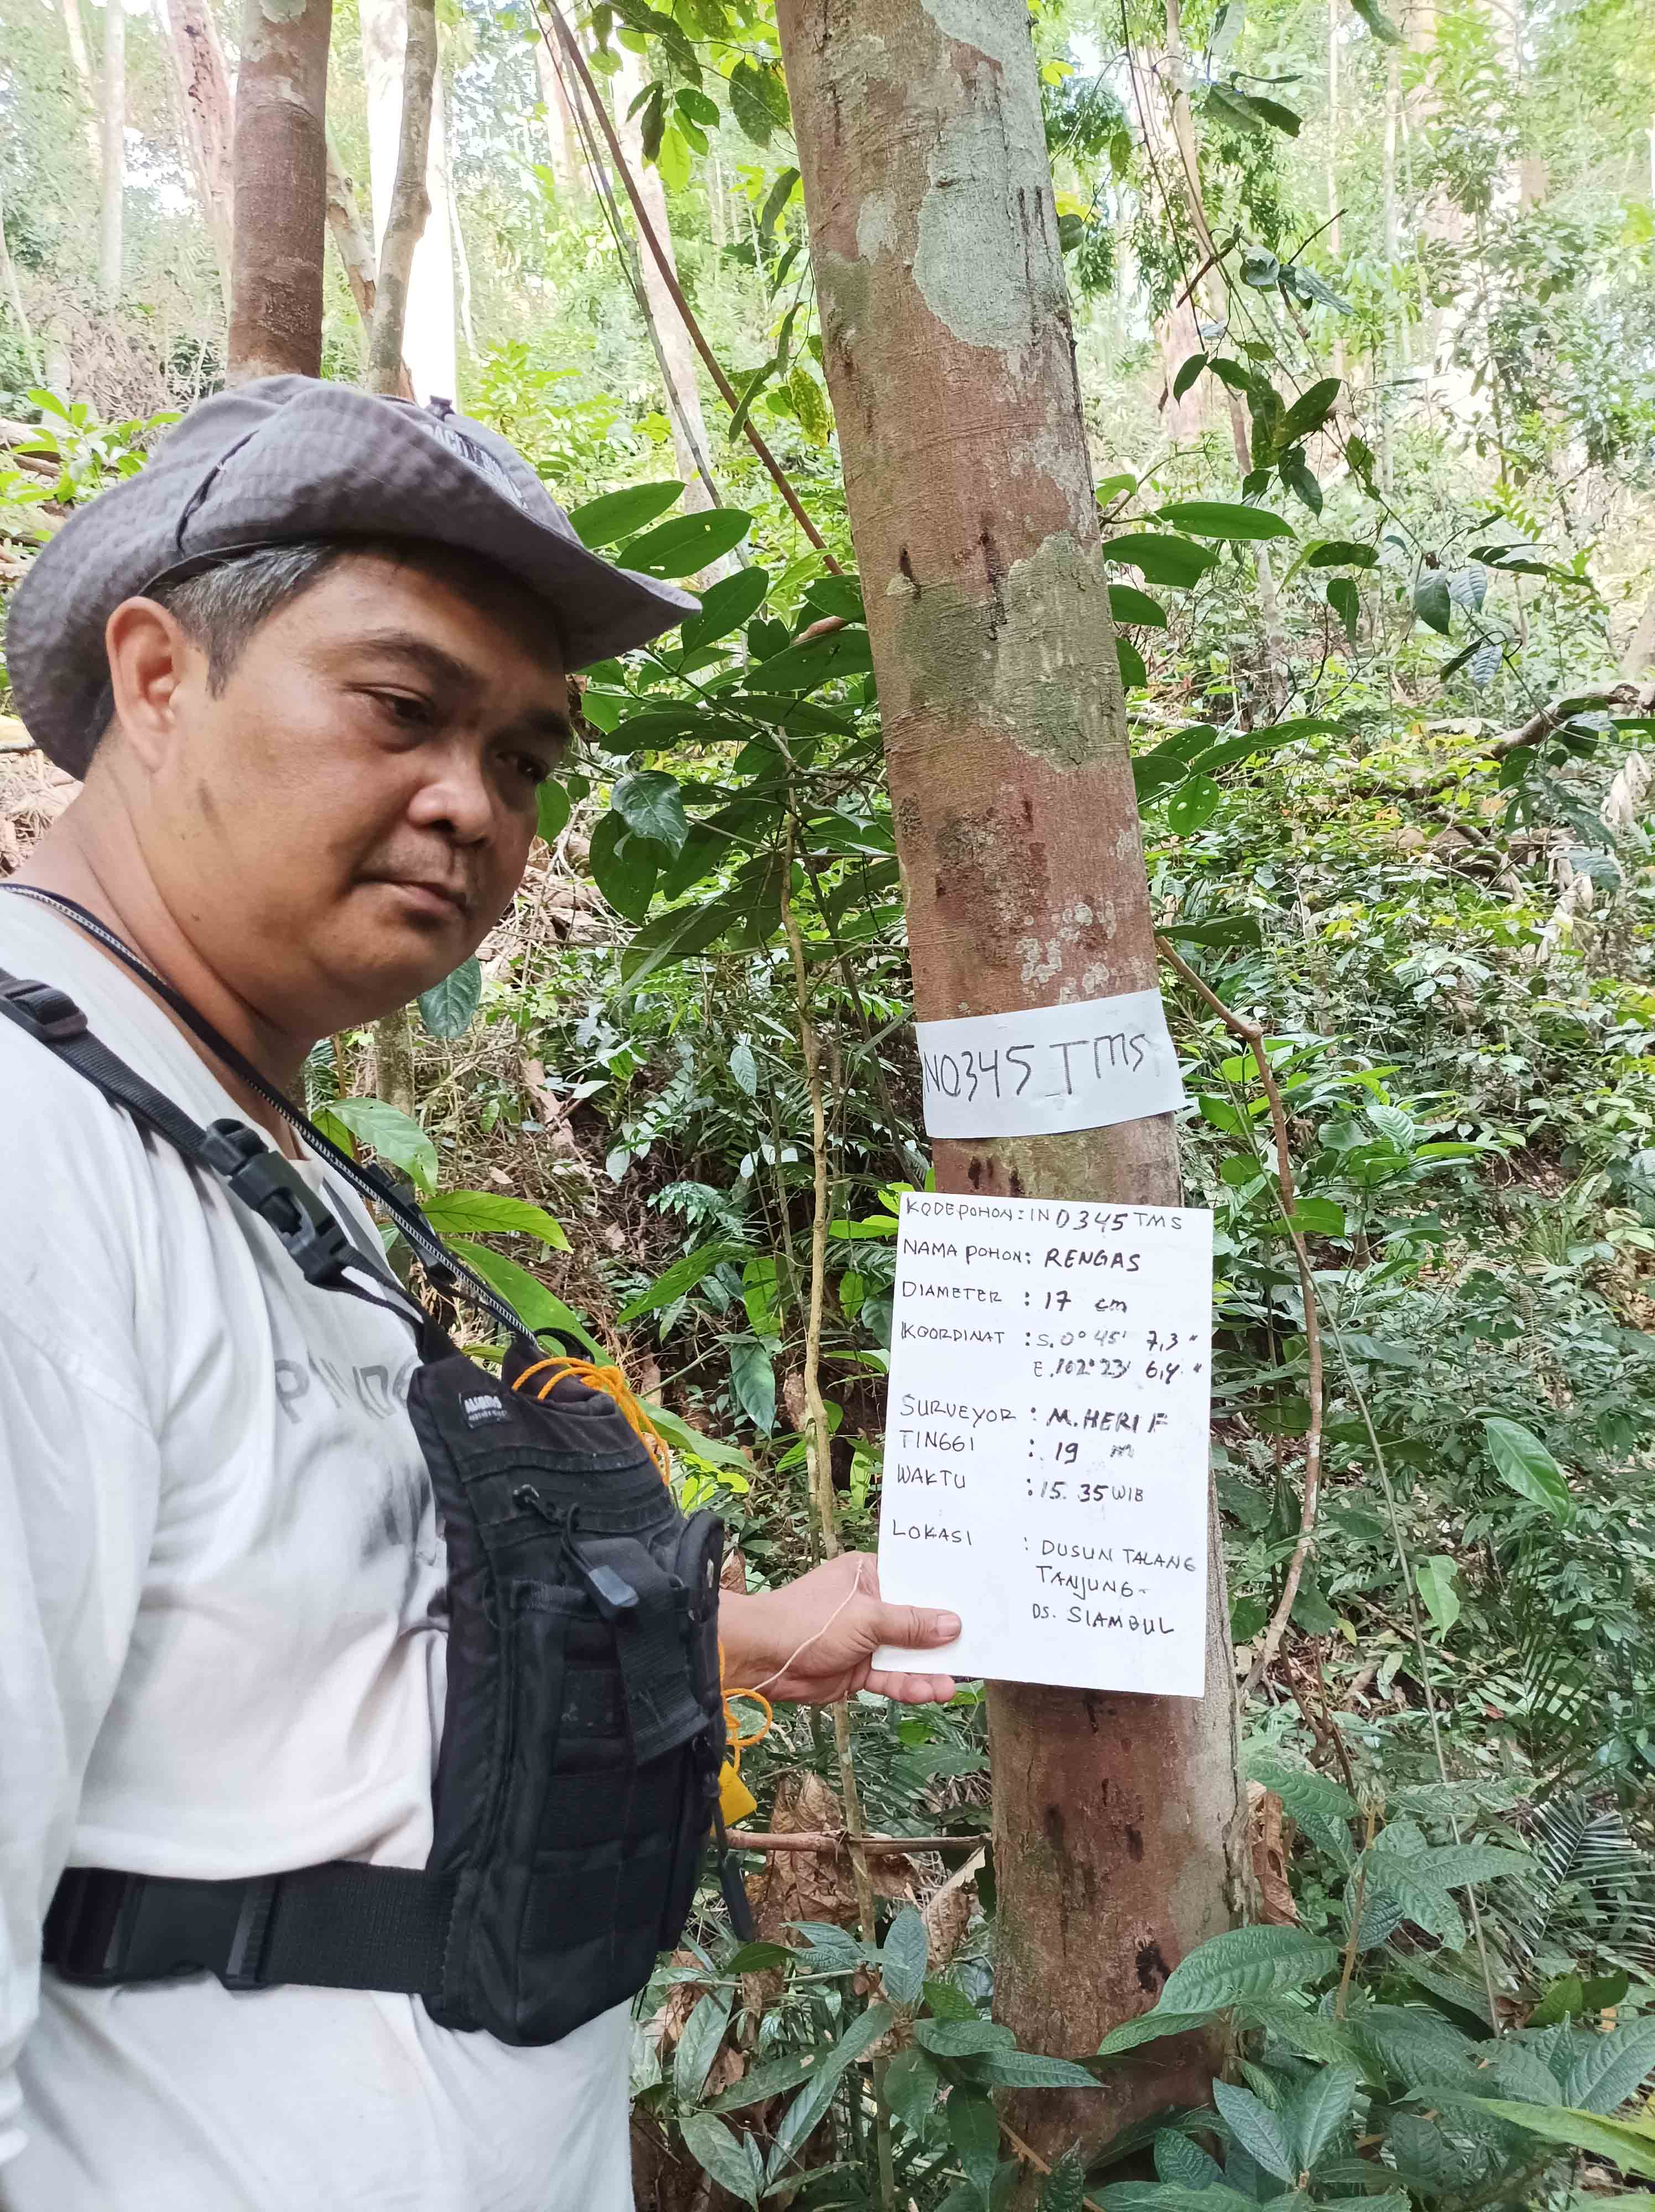 NO345 TMS
KODEPOHON: IND345 TMS
NAMA POHON: RENGAS
DIAMETER : 17 cm
KOORDINAT : S. 0° 45' 7,3 "
E. 102° 23' 6,4 "
SURVEYOR : M. HERI F
TINGGI : 19 m
WAKTU : 15. 35 WIB
LOKASI : DUSUN TALANG
TANJUNG-
DS. SIAMBUL